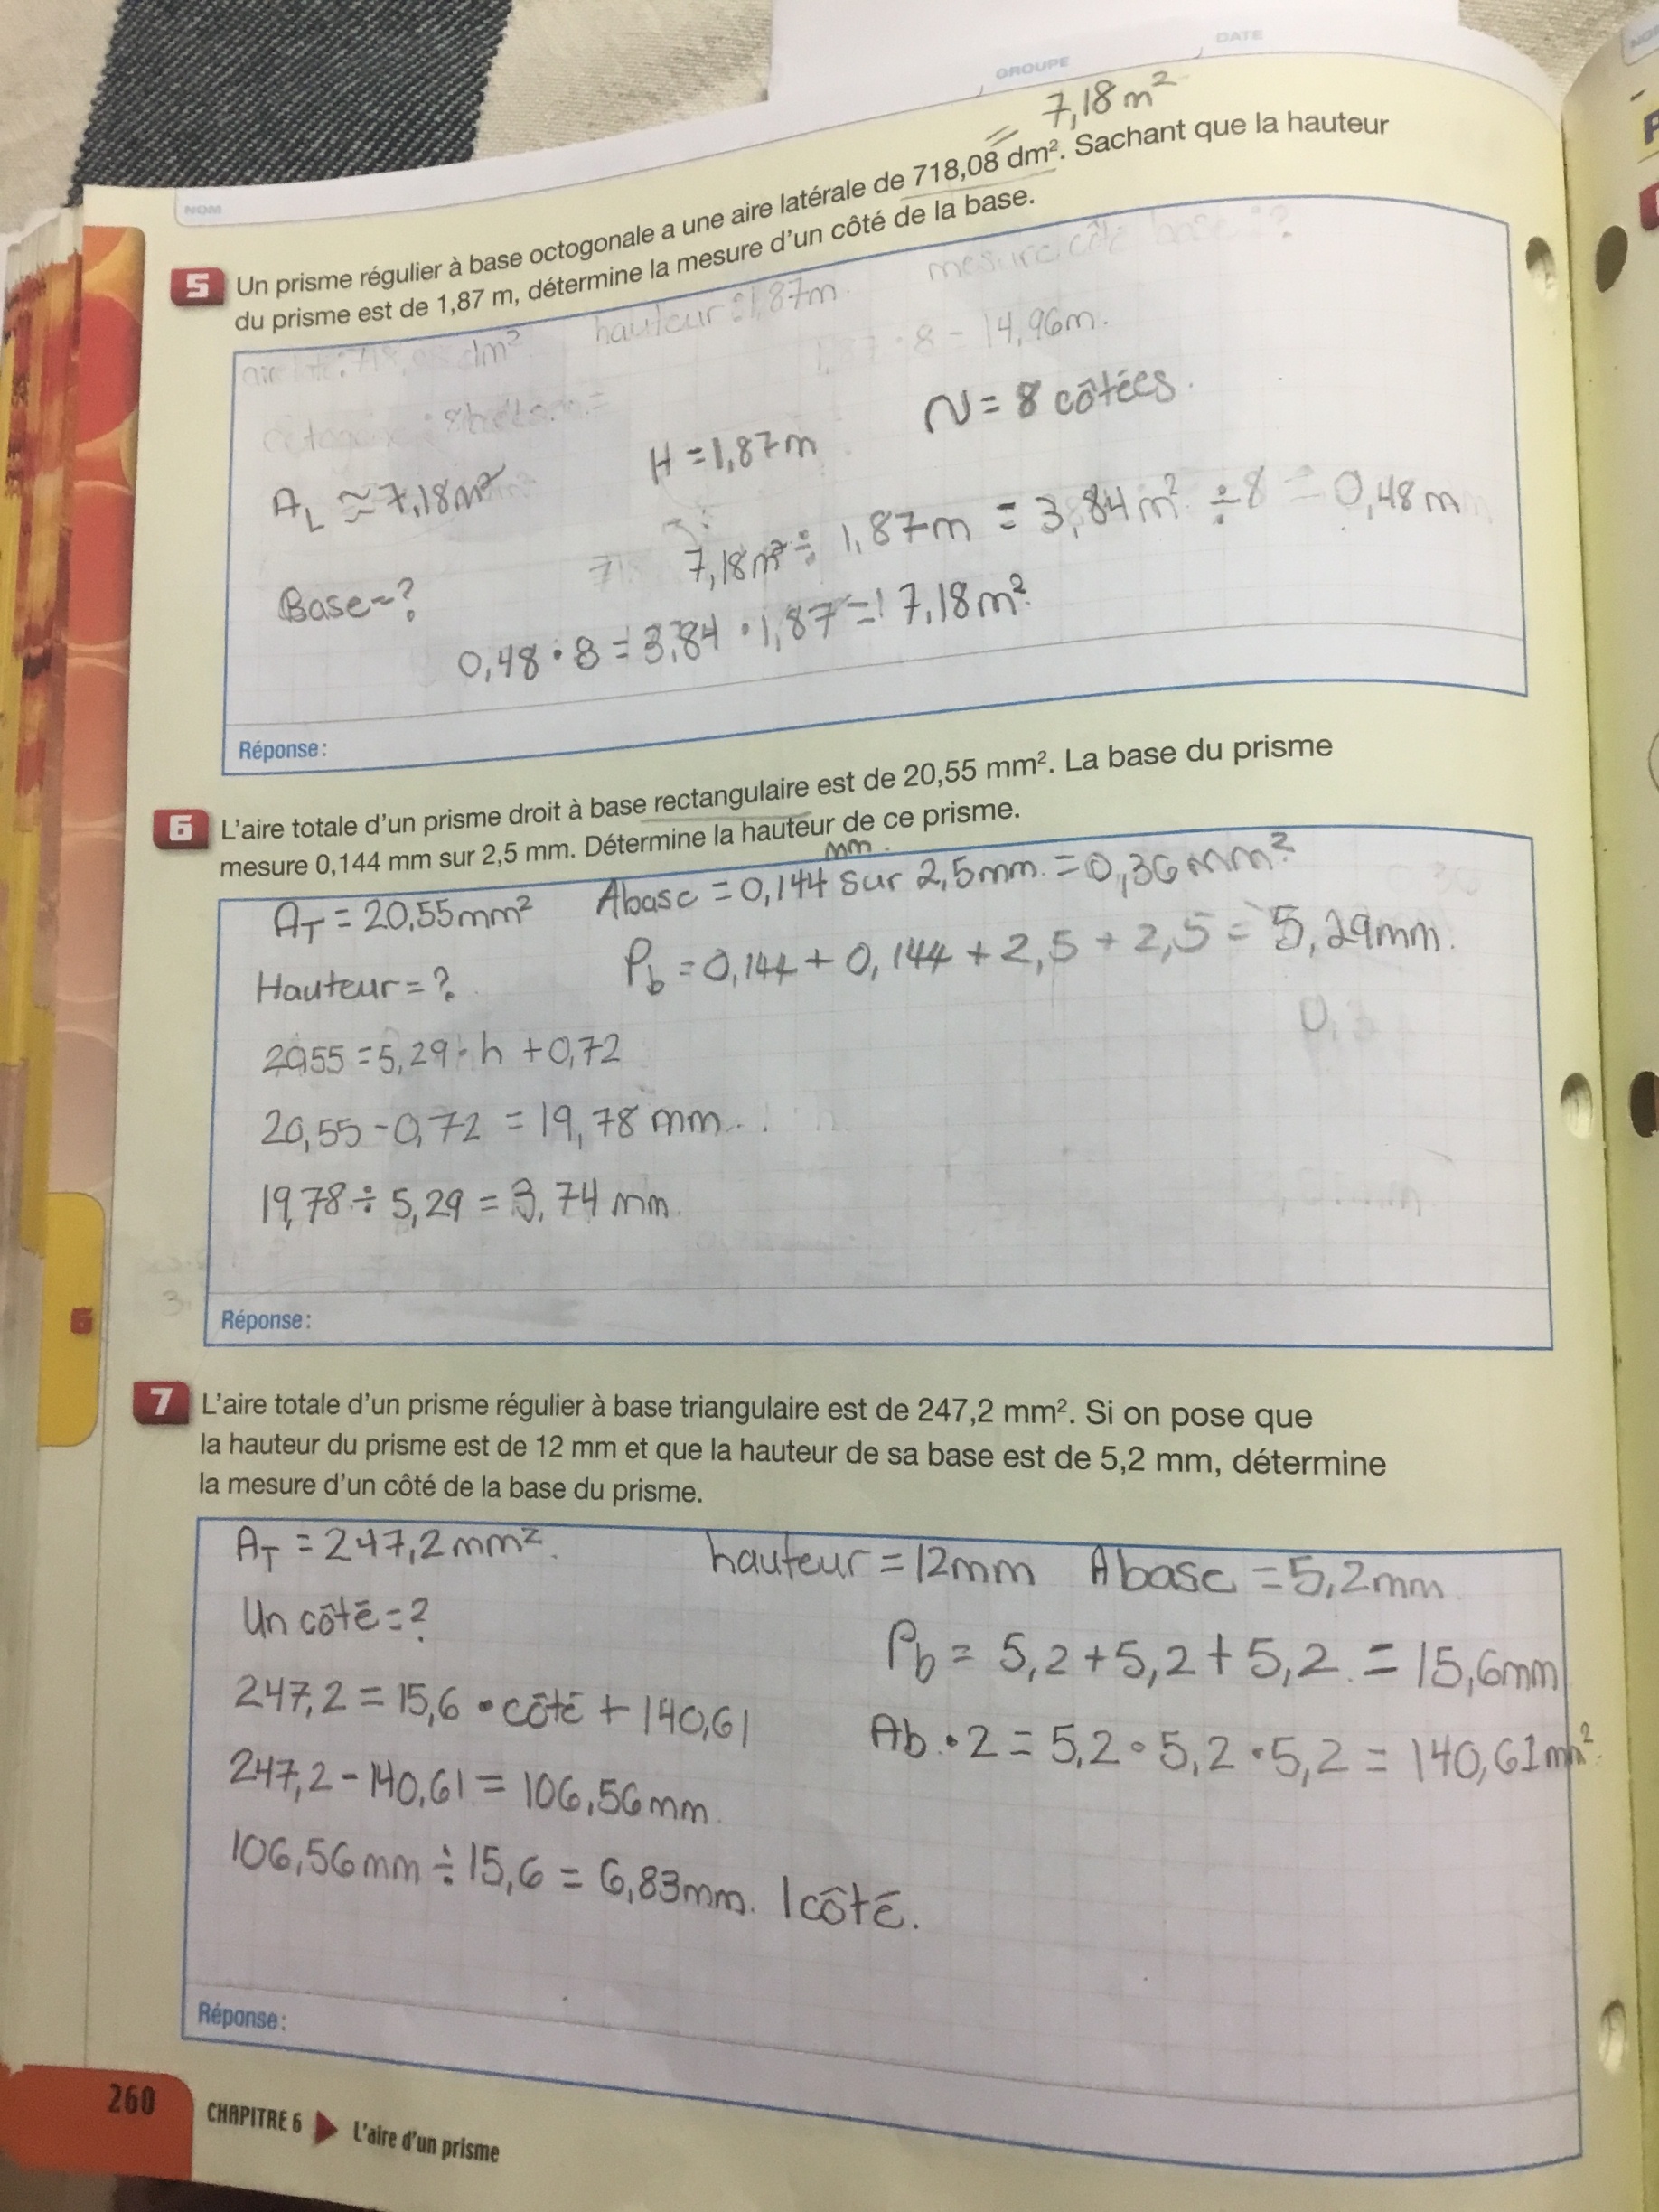 GROUPE
DATE
NOM
= 7,18 m²
5 Un prisme régulier à base octogonale a une aire latérale de 718,08 dm². Sachant que la hauteur
du prisme est de 1,87 m, détermine la mesure d'un côté de la base.
hauteur : 1,87m mesure côté base = ?
dm² 8 = 14,96m.
A_L ≈ 7,18m² H = 1,87m N = 8 côtées.
7,18m² ÷ 1,87m = 3,84m² ÷ 8 = 0,48m
Base = ?
0,48 · 8 = 3,84 · 1,87 = 7,18m²
Réponse :
6 L'aire totale d'un prisme droit à base rectangulaire est de 20,55 mm². La base du prisme
mesure 0,144 mm sur 2,5 mm. Détermine la hauteur de ce prisme.
mm.
A_T = 20,55mm² Abase = 0,144 sur 2,5mm. = 0,36mm²
Hauteur = ? P_b = 0,144 + 0,144 + 2,5 + 2,5 = 5,29mm.
20,55 = 5,29 · h + 0,72
20,55 - 0,72 = 19,78 mm.
19,78 ÷ 5,29 = 3,74 mm.
Réponse :
6
7 L'aire totale d'un prisme régulier à base triangulaire est de 247,2 mm². Si on pose que
la hauteur du prisme est de 12 mm et que la hauteur de sa base est de 5,2 mm, détermine
la mesure d'un côté de la base du prisme.
A_T = 247,2mm². hauteur = 12mm Abase = 5,2mm
Un côté = ? P_b = 5,2 + 5,2 + 5,2. = 15,6mm
247,2 = 15,6 • côté + 140,61 Ab. · 2 = 5,2 · 5,2 · 5,2 = 140,61mm².
247,2 - 140,61 = 106,56mm.
106,56mm ÷ 15,6 = 6,83mm. 1 côté.
Réponse :
260 CHAPITRE 6 L'aire d'un prisme